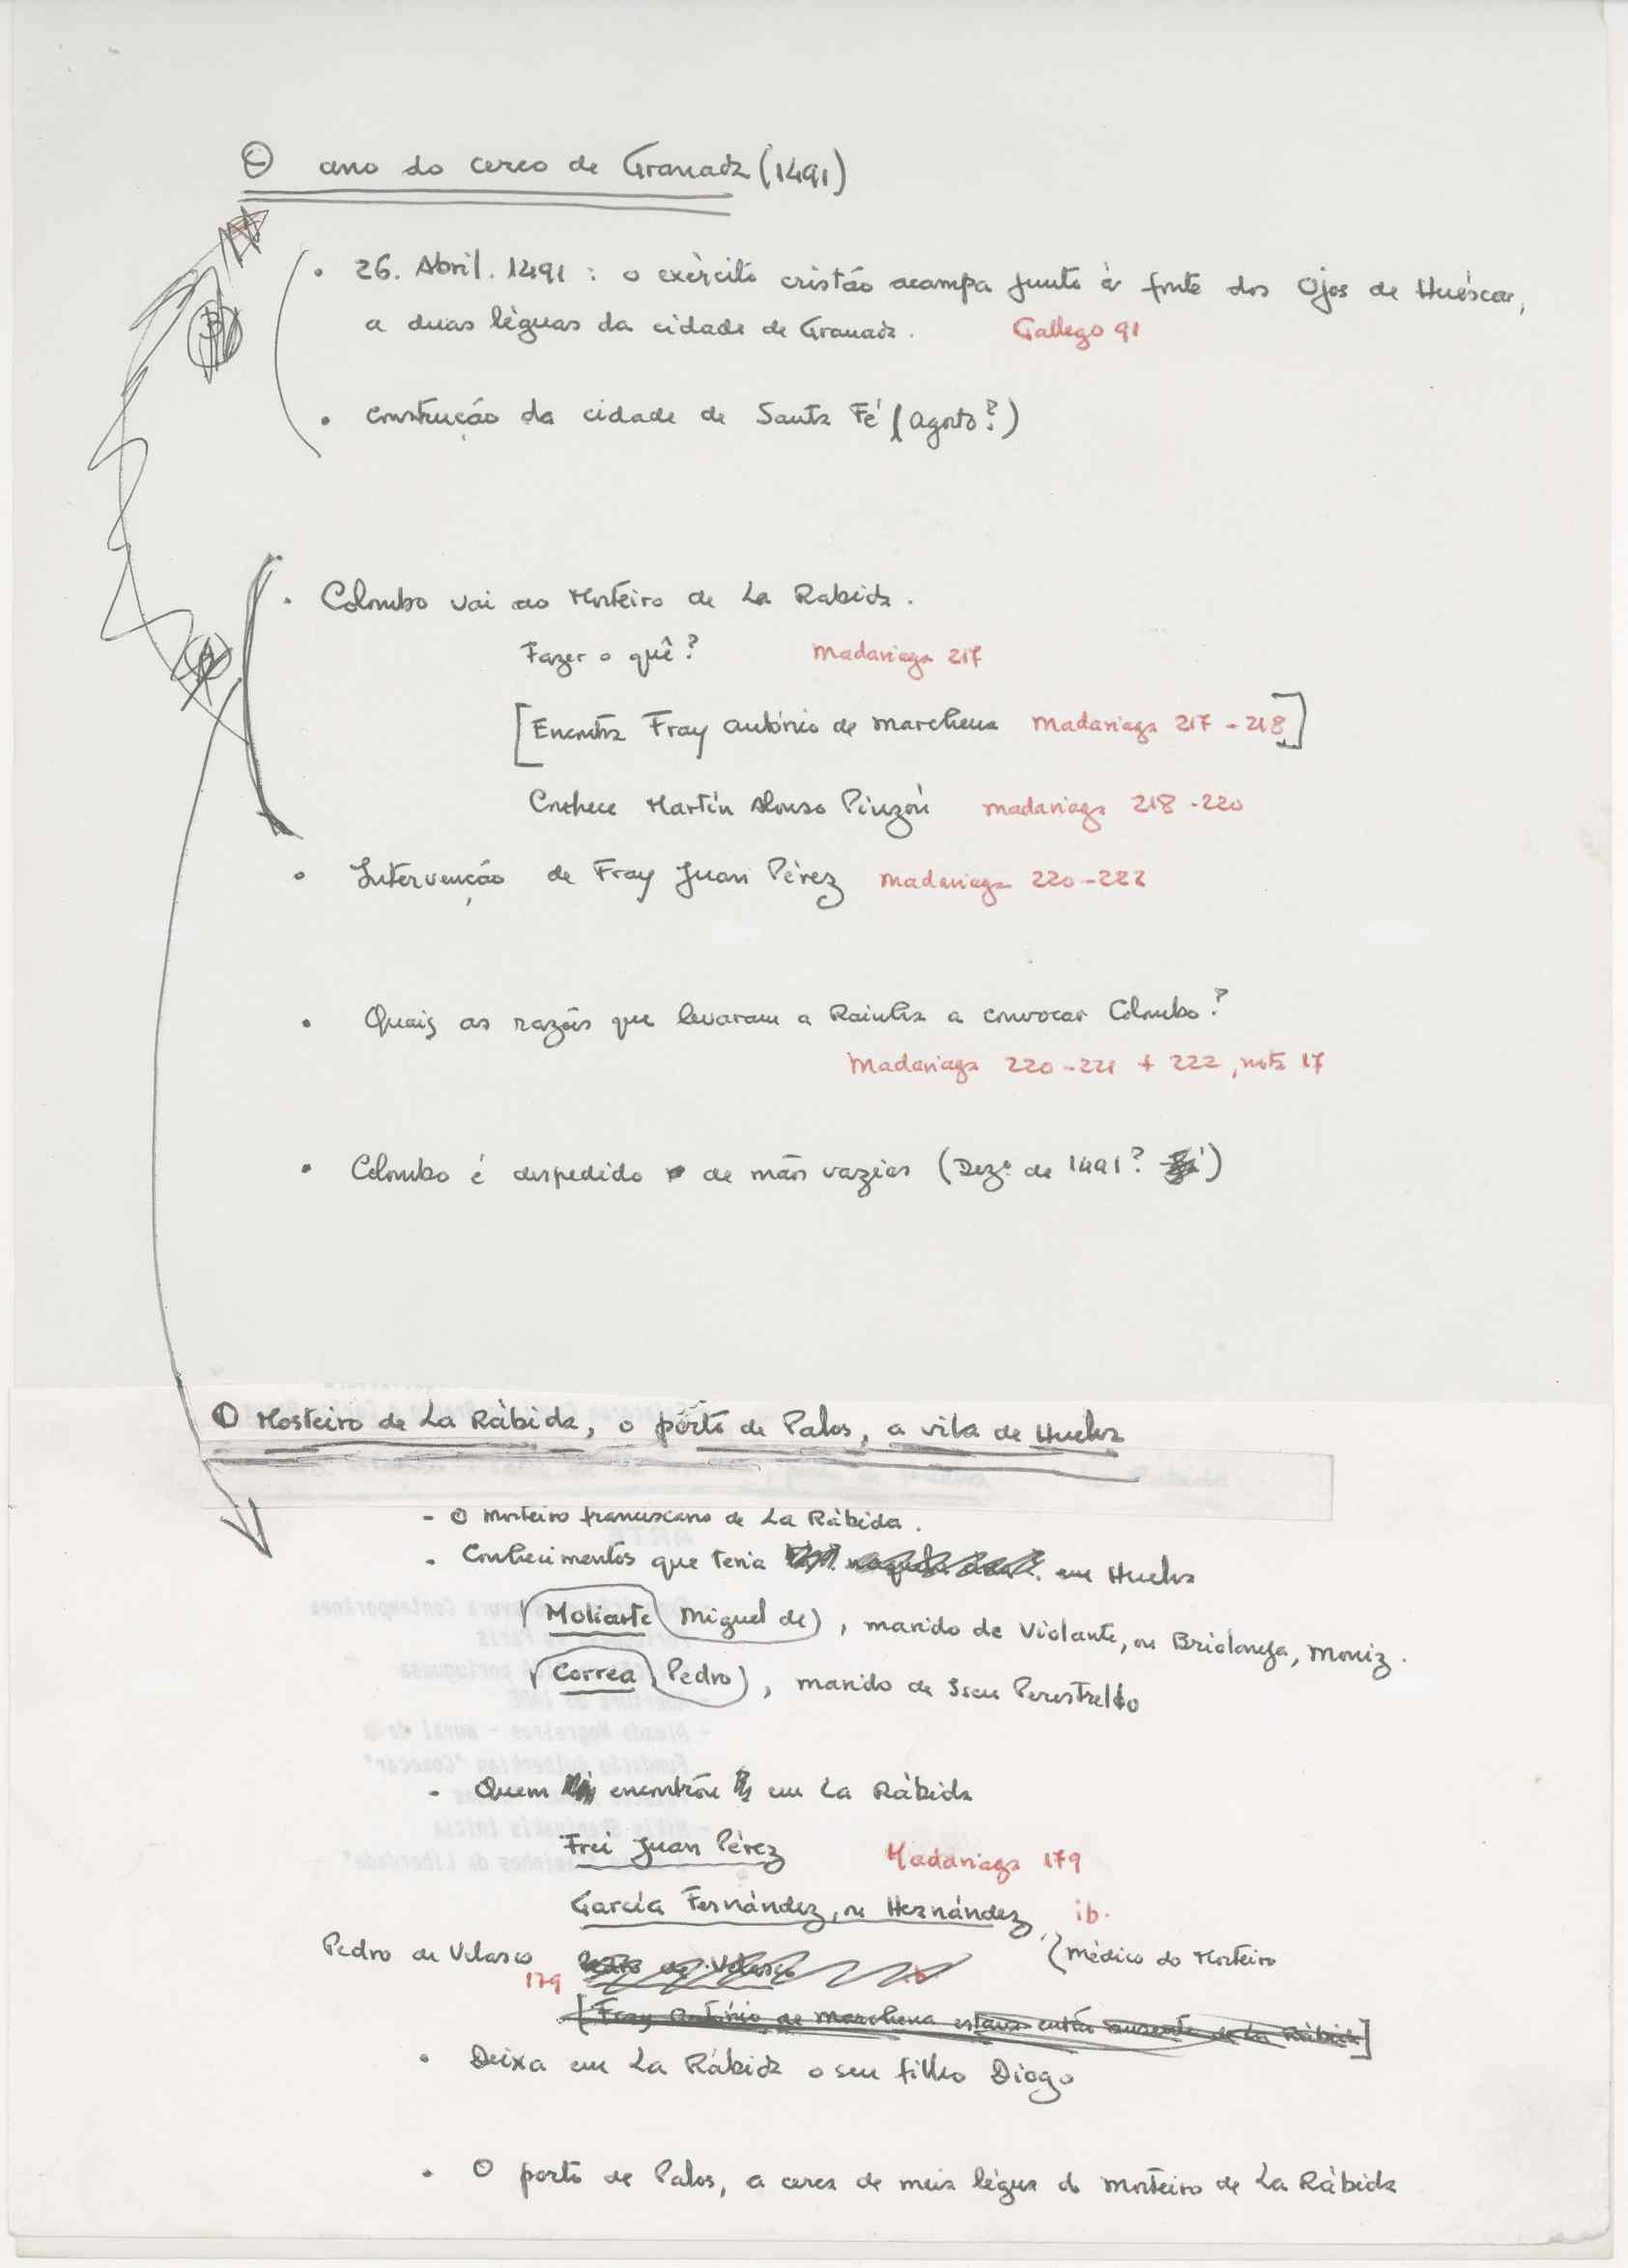 O ano do cerco de Granada (1491)
. 26. Abril. 1491 : o exército cristão acampa junto à fonte dos Ojos de Huéscar,
a duas léguas da cidade de Granada. Gallego 91
. construção da cidade de Santa Fé (agosto?)
. Colombo vai ao Mosteiro de La Rabida.
Fazer o quê? Madariaga 217
[Encontra Fray António de Marchena Madariaga 217-218]
Conhece Martín Alonso Pinzón Madariaga 218-220
. Intervenção de Fray Juan Pérez Madariaga 220-222
. Quais as razões que levaram a Rainha a convocar Colombo?
Madariaga 220-221 + 222, nota 17
. Colombo é despedido de mãos vazias (Dezº de 1491?)
O Mosteiro de La Rábida, o porto de Palos, a vila de Huelva
- O mosteiro franciscano de La Rábida.
. Conhecimentos que teria em Huelva
Moliarte (Miguel de), marido de Violante, ou Briolanja, Moniz.
Correa (Pedro), marido de Iseu Perestrello
. Quem encontrou em La Rábida
Frei Juan Pérez Madariaga 179
García Fernández, ou Hernández, ib.
(médico do Mosteiro
Pedro de Velasco Pedro de Velasco ib
179
[Fray António de Marchena estava então ausente de La Rábida]
. Deixa em La Rábida o seu filho Diogo
. O porto de Palos, a cerca de meia légua do mosteiro de La Rábida